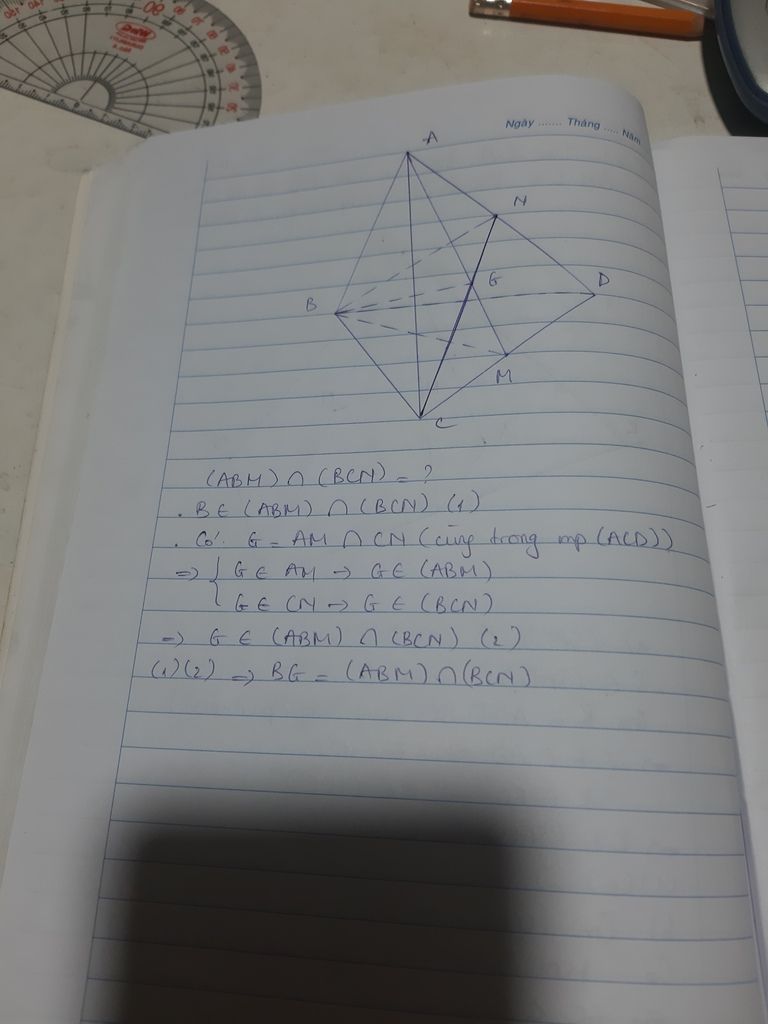 Ngày ....... Tháng ..... Năm
A
N
G
D
B
M
C
(ABM) ∩ (BCN) = ?
. B ∈ (ABM) ∩ (BCN) (1)
. Có: G = AM ∩ CN (cùng trong mp (ACD))
=> { G ∈ AM → G ∈ (ABM)
G ∈ CN → G ∈ (BCN)
=> G ∈ (ABM) ∩ (BCN) (2)
(1)(2) => BG = (ABM) ∩ (BCN)